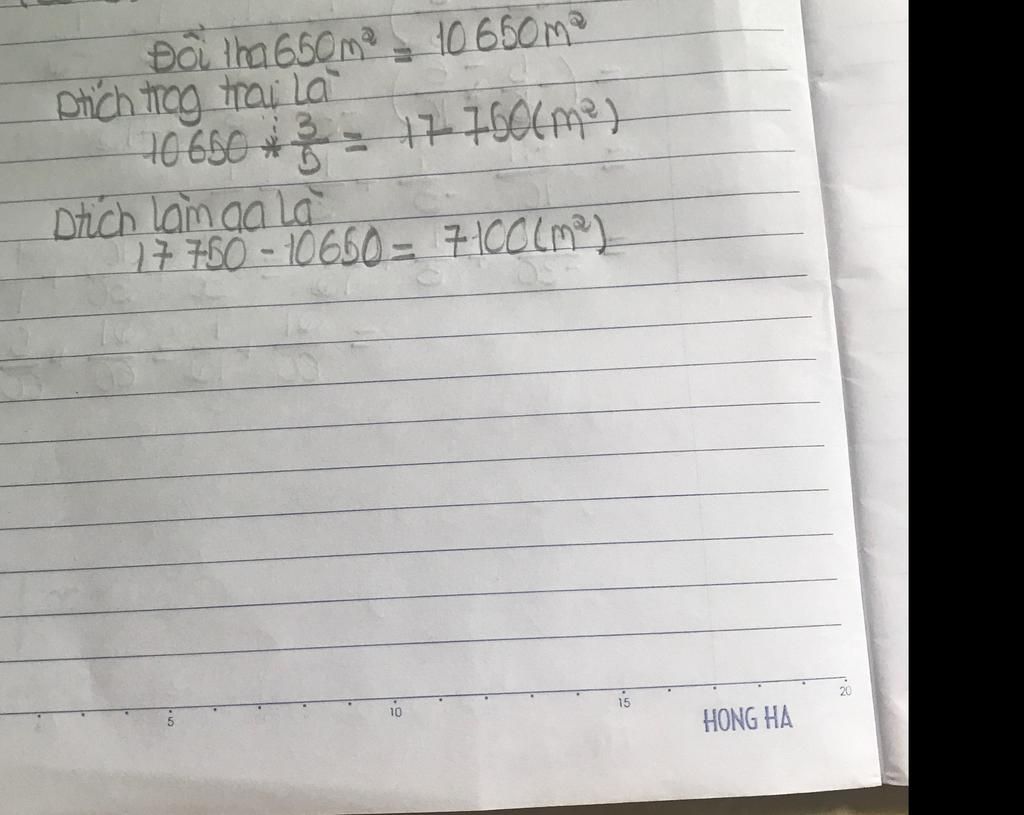 Đổi 1ha650m² = 10650m²
Dtích trag trại là
10650 : 3/5 = 17 750(m²)
Dtích làm ga là
17 750 - 10650 = 7100(m²)
5 10 15 20
HONG HA